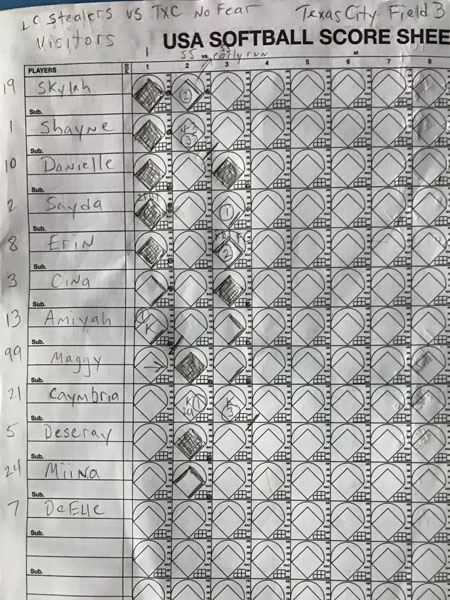 LC Stealers VS TXC No Fear Texas City Field 3
Visitors
USA SOFTBALL SCORE SHEE
PLAYERS POS 1 2 3 4 5 6 7 8
19 Skylah
Sub.
1 Shayne
Sub.
10 Danielle
Sub.
2 Sayda
Sub.
8 Erin
Sub.
3 Cina
Sub.
13 Amiyah K
Sub.
99 Maggy
Sub.
21 Caymbria K K
Sub.
5 Deseray
Sub.
24 Miina
Sub.
7 DeElle
Sub.
Sub.